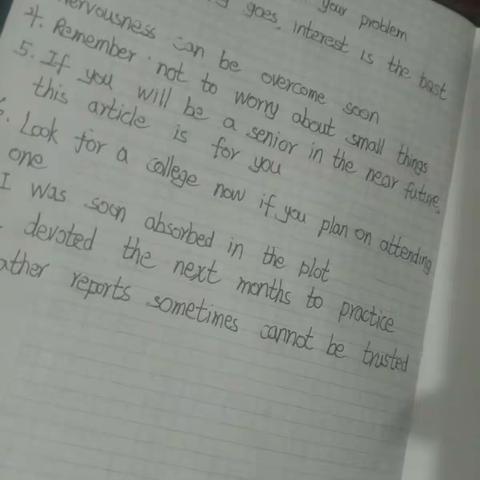 your problem
goes, interest is the best
nervousness can be overcome soon
4. Remember not to worry about small things
5. If you will be a senior in the near future,
this article is for you
6. Look for a college now if you plan on attending
one
I was soon absorbed in the plot
devoted the next months to practice
ather reports sometimes cannot be trusted